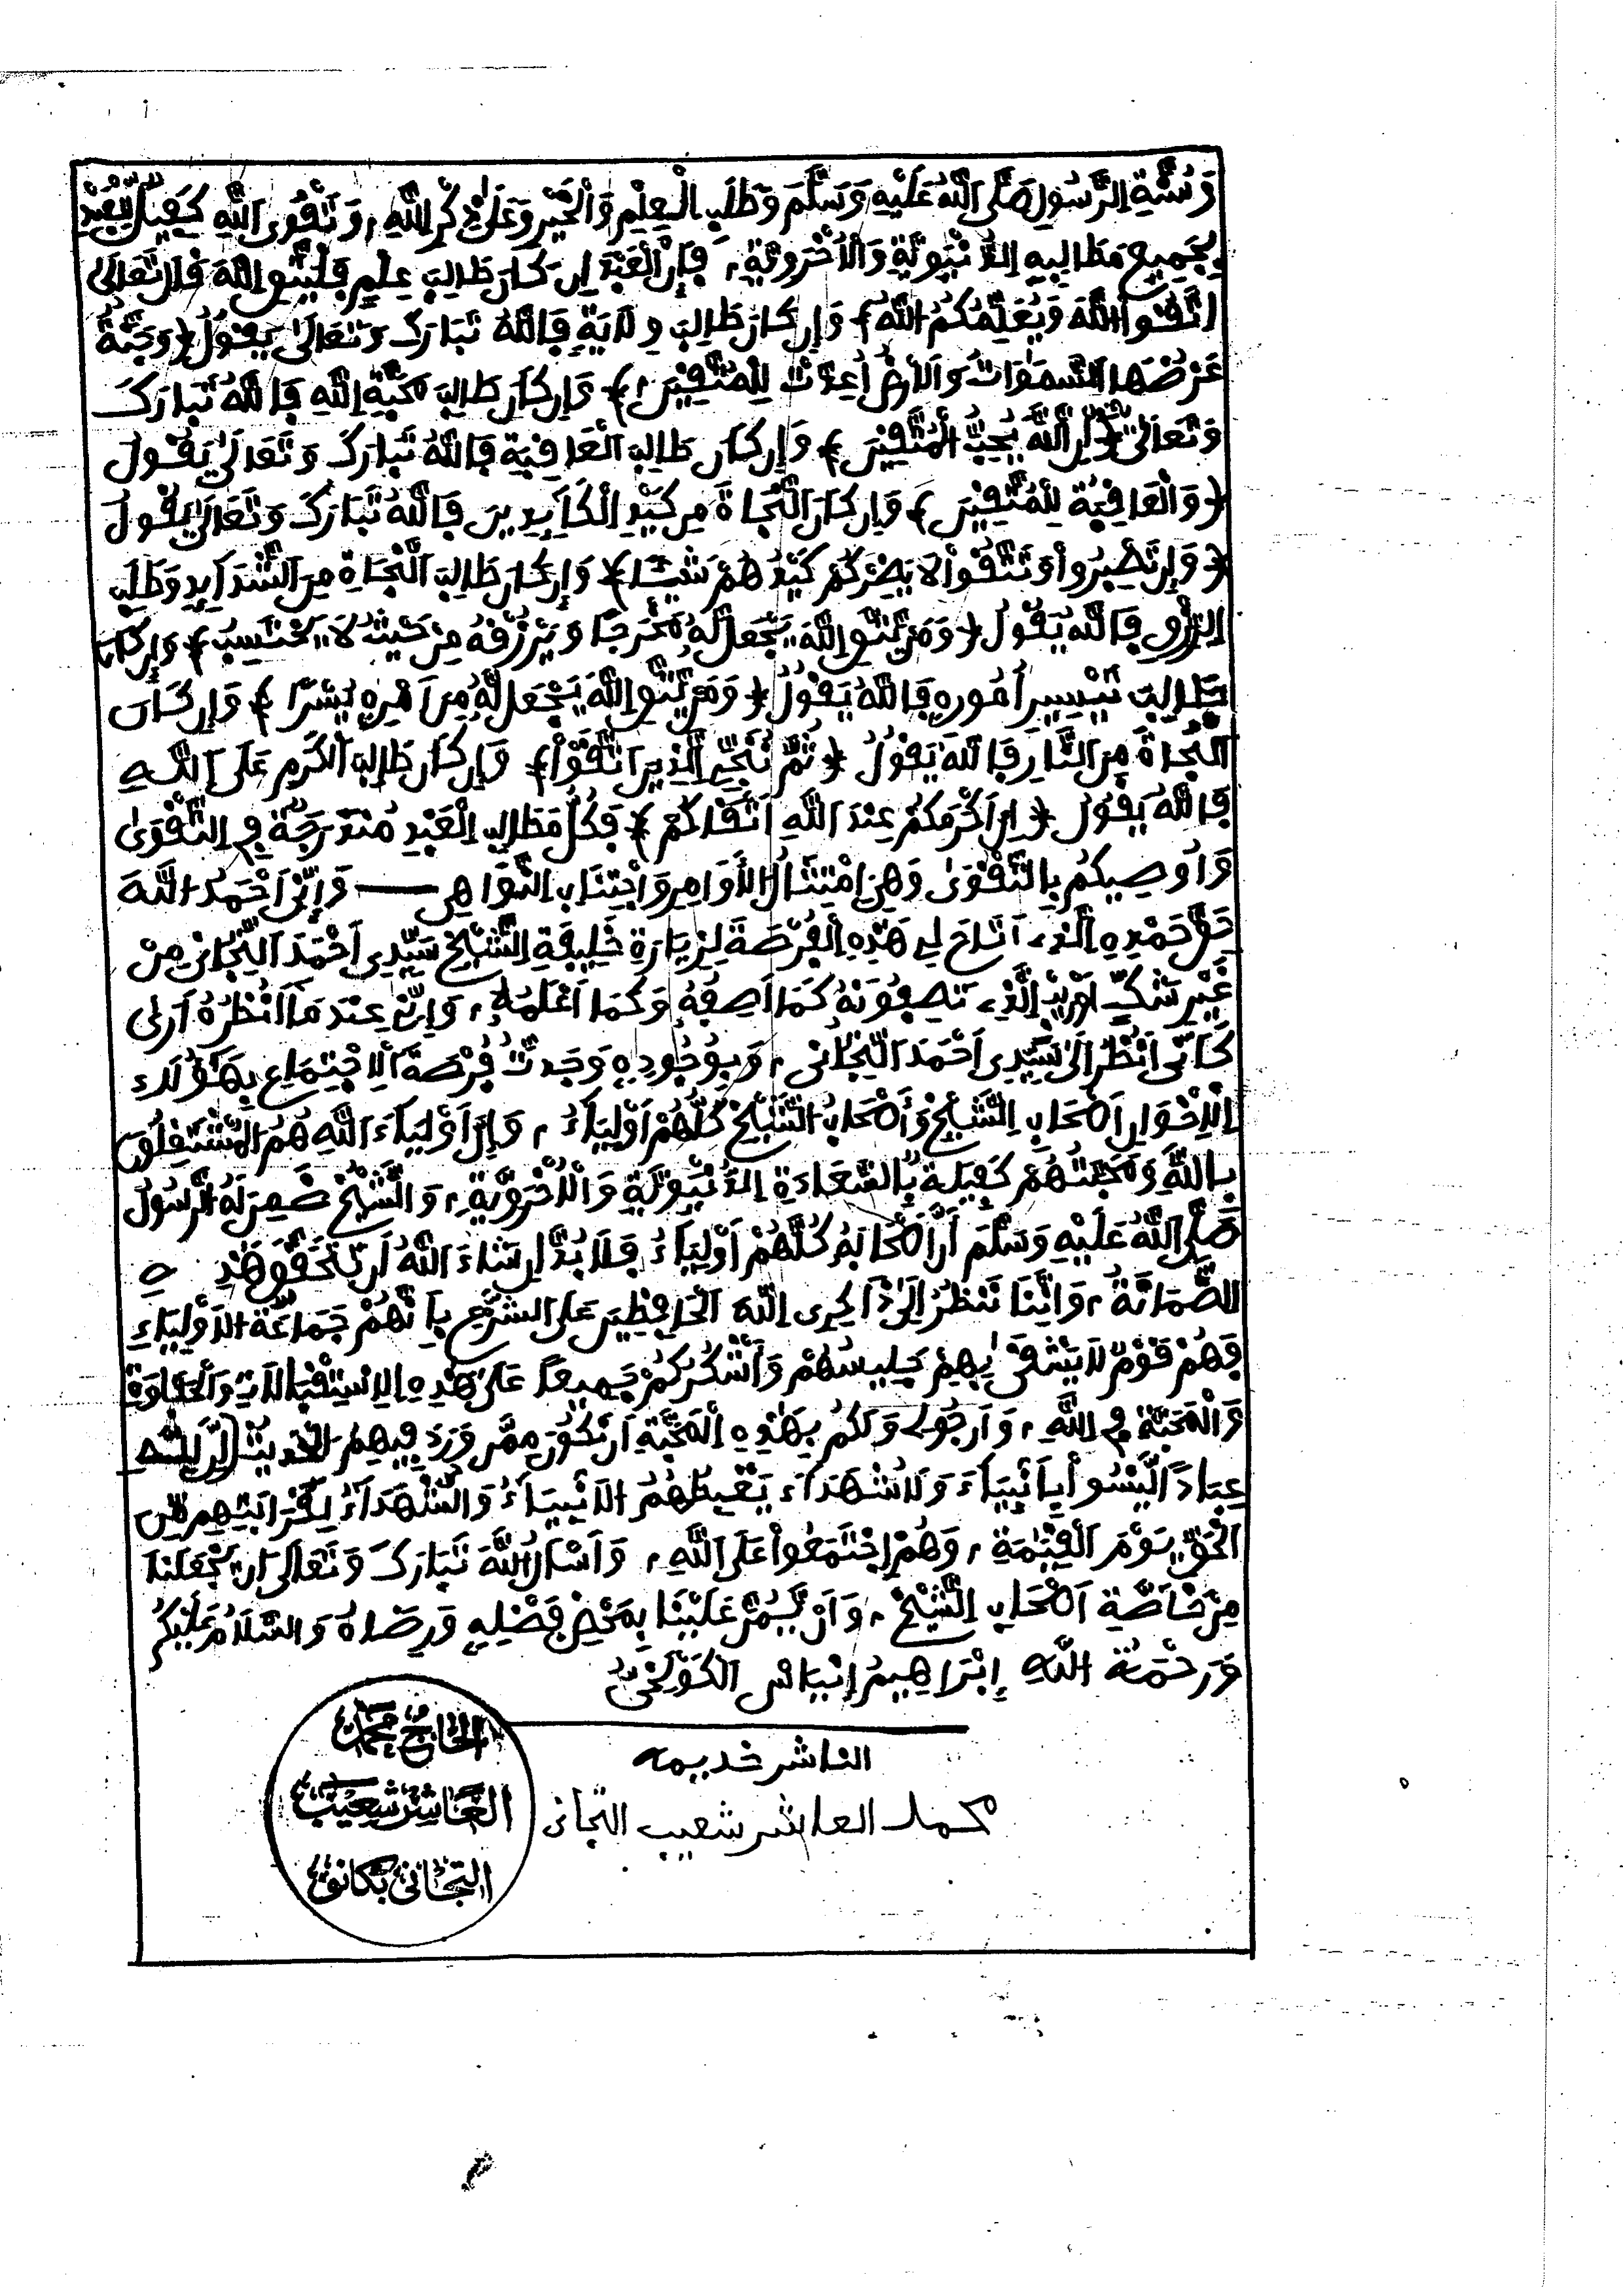 وَسُنَّةِ الرَّسُولِ صَلَّى اللَّهُ عَلَيْهِ وَسَلَّمَ وَطَلَبِ الْعِلْمِ وَالْخَيْرِ وَعَلَى ذِكْرِ اللَّهِ، وَتَقْوَى اللَّهِ كَفِيلٌ لِلْعَبْدِ
بِجَمِيعِ مَطَالِبِهِ الدُّنْيَوِيَّةِ وَالْأُخْرَوِيَّةِ، فَإِنَّ الْعَبْدَ إِن كَانَ طَالِبَ عِلْمٍ فَلْيَتَّقِ اللَّهَ قَالَ تَعَالَى
اتَّقُوا اللَّهَ وَيُعَلِّمُكُمُ اللَّهُ﴾ وَإِن كَانَ طَالِبَ وِلَايَةٍ فَاللَّهُ تَبَارَكَ وَتَعَالَى يَقُولُ ﴿وَجَنَّةٌ
عَرْضُهَا السَّمَوَاتُ وَالْأَرْضُ أُعِدَّتْ لِلْمُتَّقِينَ﴾ وَإِن كَانَ طَالِبَ مَحَبَّةِ اللَّهِ فَاللَّهُ تَبَارَكَ
وَتَعَالَى يَقُولُ ﴿إِنَّ اللَّهَ يُحِبُّ الْمُتَّقِينَ﴾ وَإِن كَانَ طَالِبَ الْعَافِيَةِ فَاللَّهُ تَبَارَكَ وَتَعَالَى يَقُولُ
﴿وَالْعَاقِبَةُ لِلْمُتَّقِينَ﴾ وَإِن كَانَ النَّجَاةَ مِن كَيْدِ الْكَايِدِينَ فَاللَّهُ تَبَارَكَ وَتَعَالَى يَقُولُ
﴿وَإِن تَصْبِرُوا وَتَتَّقُوا لَا يَضِرْكُمْ كَيْدُهُمْ شَيْئًا﴾ وَإِن كَانَ طَالِبَ النَّجَاةِ مِنَ الشَّدَايِدِ وَطَلَبِ
الرِّزْقِ فَاللَّهُ يَقُولُ ﴿وَمَن يَتَّقِ اللَّهَ يَجْعَل لَهُ مَخْرَجًا وَيَرْزُقْهُ مِنْ حَيْثُ لَا يَحْتَسِبُ﴾ وَإِن كَانَ
طَالِبَ تَيْسِيرِ أُمُورِهِ فَاللَّهُ يَقُولُ ﴿وَمَن يَتَّقِ اللَّهَ يَجْعَل لَهُ مِنْ أَمْرِهِ يُسْرًا﴾ وَإِن كَانَ
النَّجَاةَ مِنَ النَّارِ فَاللَّهُ يَقُولُ ﴿ثُمَّ نُنَجِّي الَّذِينَ اتَّقَوْا﴾ وَإِن كَانَ طَالِبَ الْكَرَمِ عَلَى اللَّهِ
فَاللَّهُ يَقُولُ ﴿إِنَّ أَكْرَمَكُمْ عِندَ اللَّهِ أَتْقَاكُمْ﴾ فَكُلُّ مَطَالِبِ الْعَبْدِ مُنْدَرِجَةٌ فِي التَّقْوَى
وَأُوصِيكُمْ بِالتَّقْوَى وَهِيَ امْتِثَالُ الْأَوَامِرِ وَاجْتِنَابِ النَّوَاهِي — وَإِنِّي أَحْمَدُ اللَّهَ
حَقَّ حَمْدِهِ الَّذِي أَتَاحَ لِي هَذِهِ الْفُرْصَةَ لِزِيَارَةِ خَلِيفَةِ الشَّيْخِ سَيِّدِي أَحْمَدَ التِّجَانِي مِنْ
غَيْرِ شَكٍّ أَوْ رَيْبٍ الَّذِي تَصِفُونَهُ كَمَا أَصِفُهُ وَكَمَا أَعْلَمُهُ، وَإِنِّي عِنْدَ مَا أَنْظُرُهُ أَرَى
كَأَنِّي أَنْظُرُ إِلَى سَيِّدِي أَحْمَدَ التِّجَانِي، وَبِوُجُودِهِ وَجَدتُّ فُرْصَةَ الِاجْتِمَاعِ بِهَؤُلَاءِ
الْإِخْوَانِ أَصْحَابِ الشَّيْخِ وَأَصْحَابُ الشَّيْخِ كُلُّهُمْ أَوْلِيَاءُ، وَإِنَّ أَوْلِيَاءَ اللَّهِ هُمُ الْمُشْتَغِلُونَ
بِاللَّهِ وَمَحَبَّتُهُمْ كَفِيلَةٌ بِالسَّعَادَةِ الدُّنْيَوِيَّةِ وَالْأُخْرَوِيَّةِ، وَالشَّيْخُ ضَمِنَ لَهُ الرَّسُولُ
صَلَّى اللَّهُ عَلَيْهِ وَسَلَّمَ أَنَّ أَصْحَابَهُ كُلَّهُمْ أَوْلِيَاءُ فَلَا بُدَّ إِن شَاءَ اللَّهُ أَن تَتَحَقَّقَ هَذِهِ
الضَّمَانَةُ، وَإِنَّنَا نَنْظُرُ إِلَى ذَاكِرِي اللَّهِ الْحَافِظِينَ عَلَى الشَّرْعِ بِأَنَّهُمْ جَمَاعَةُ الْأَوْلِيَاءِ
فَهُمْ قَوْمٌ لَا يَشْقَى بِهِمْ جَلِيسُهُمْ وَأَشْكُرُكُمْ جَمِيعًا عَلَى هَذِهِ الِاسْتِقْبَالَاتِ وَالْحَفَاوَةِ
وَالْمَحَبَّةِ فِي اللَّهِ، وَأَرْجُو لِي وَلَكُمْ بِهَذِهِ الْمَحَبَّةِ أَن نَكُونَ مِمَّن وَرَدَ فِيهِمُ الْحَدِيثُ (إِنَّ لِلَّهِ
عِبَادًا لَيْسُوا بِأَنْبِيَاءَ وَلَا شُهَدَاءَ يَغْبِطُهُمُ الْأَنْبِيَاءُ وَالشُّهَدَاءُ لِقَرَابَتِهِمْ مِنَ
الْحَقِّ يَوْمَ الْقِيَمَةِ، وَهُمْ اجْتَمَعُوا عَلَى اللَّهِ، وَأَسْأَلُ اللَّهَ تَبَارَكَ وَتَعَالَى أَن يَجْعَلَنَا
مِنْ خَاصَّةِ أَصْحَابِ الشَّيْخِ، وَأَنْ يَمُنَّ عَلَيْنَا بِمَحْضِ فَضْلِهِ وَرِضَاهُ وَالسَّلَامُ عَلَيْكُمْ
وَرَحْمَةُ اللَّهِ إِبْرَاهِيمُ إِنْيَاسِ الْكَوْلَخِيُّ
الناشر خديمه
محمد العاشر شعيب التجاني
الحاج محمد
العاشر شعيب
التجاني بكانو